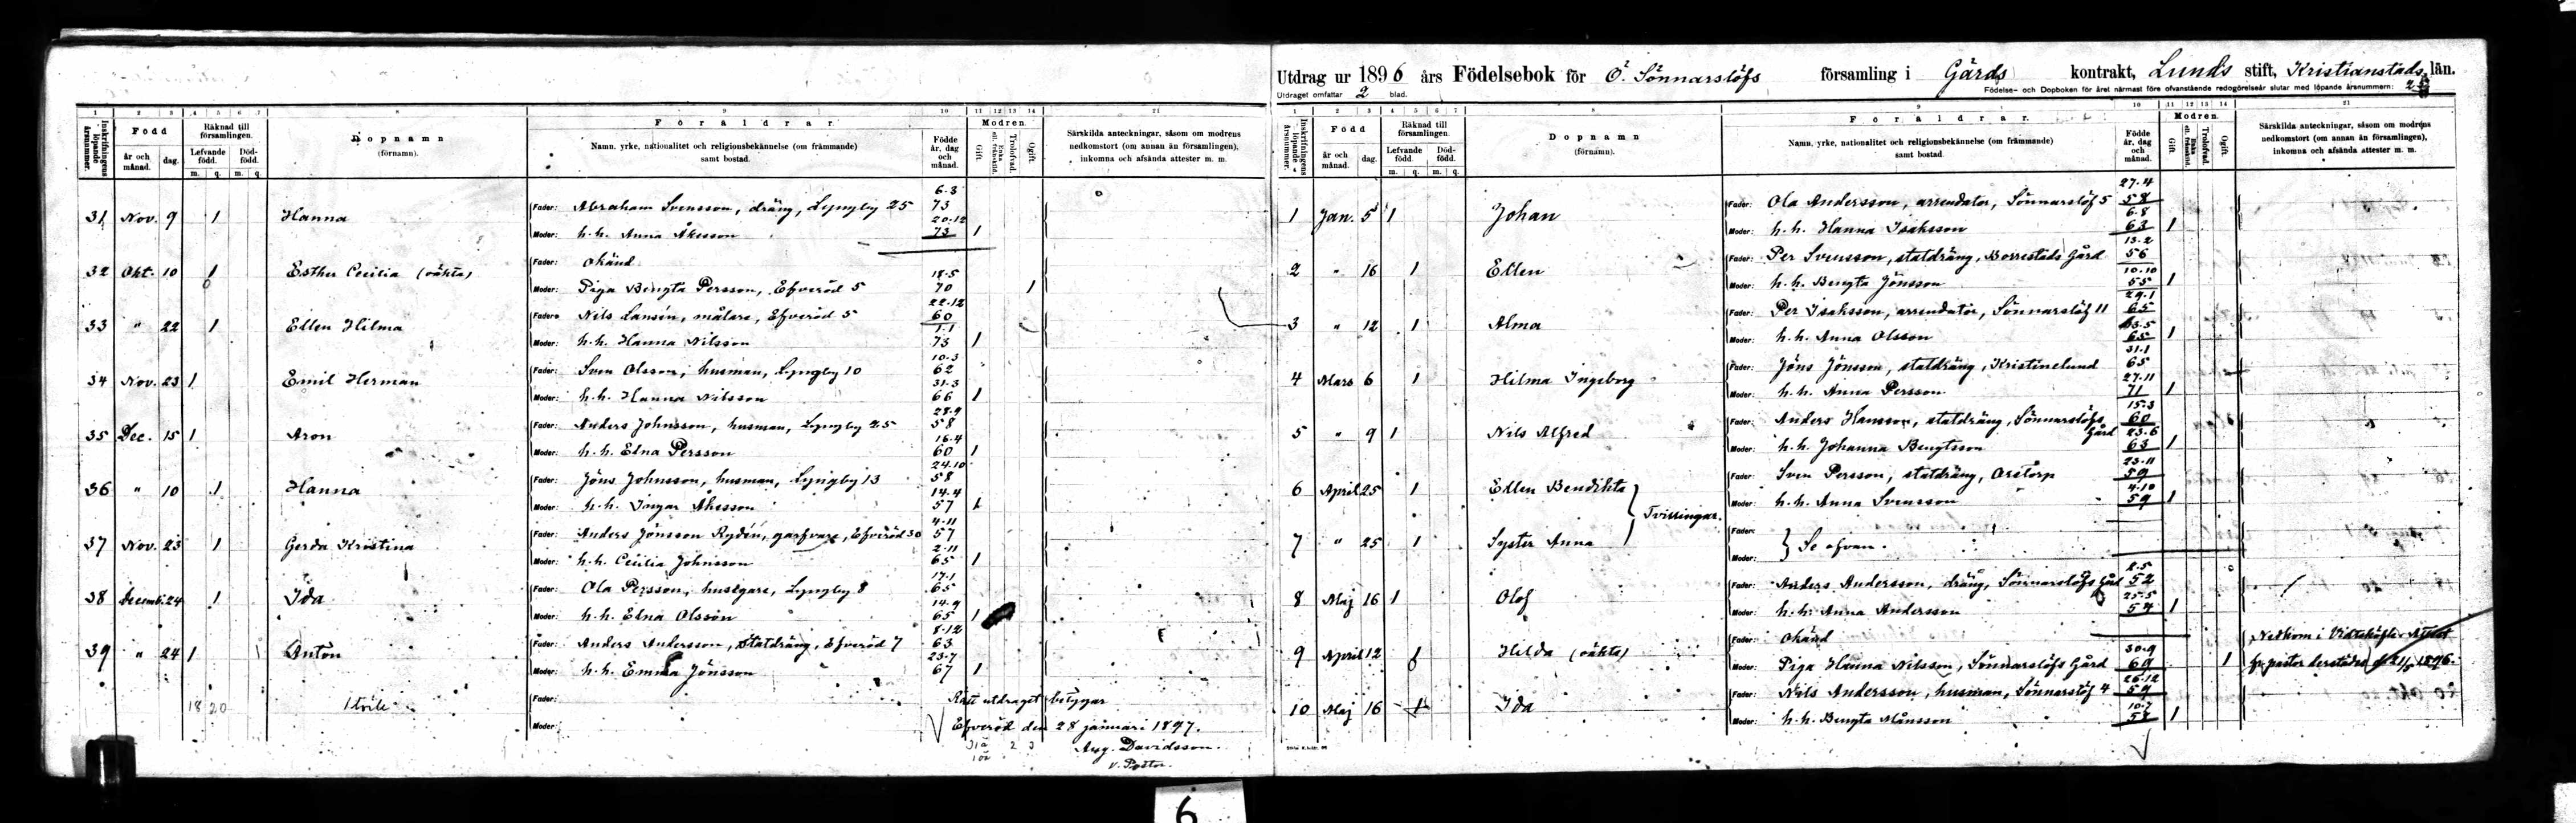 1 2 3 4 5 6 7 8 9 10 11 12 13 14 21
Inskrifningens löpande årsnummer.
Född
år och månad.
dag.
Räknad till församlingen.
Lefvande född.
Död-född.
m. q. m. q.
Dopnamn
(förnamn).
Föräldrar
Namn, yrke, nationalitet och religionsbekännelse (om främmande)
samt bostad.
Födde år, dag och månad.
Modren
Gift.
Enka ell. frånskild.
Trolofvad.
Ogift.
Särskilda anteckningar, såsom om modrens
nedkomstort (om annan än församlingen),
inkomna och afsända attester m. m.
31 Nov. 9 1 Hanna Fader: Abraham Svensson, dräng, Lyngby 25 6.3 73
Moder: h.h. Anna Åkesson 20.12 73 1
32 Okt. 10 1 Esther Cecilia (oäkta) Fader: okänd
Moder: Piga Bengta Persson, Efveröd 5 18.5 70 1
33 " 22 1 Ellen Hilma Fader: Nils Lansén, målare, Efveröd 5 22.12 60
Moder: h.h. Hanna Nilsson 1.1 73 1
34 Nov. 23 1 Emil Herman Fader: Sven Olsson, husman, Lyngby 10 10.3 62
Moder: h.h. Hanna Nilsson 31.3 66 1
35 Dec. 15 1 Aron Fader: Anders Johnsson, husman, Lyngby 25 28.9 58
Moder: h.h. Elna Persson 16.4 60 1
36 " 10 1 Hanna Fader: Jöns Johnsson, husman, Lyngby 13 24.10 58
Moder: h.h. Ingar Åkesson 14.4 57 1
37 Nov. 23 1 Gerda Kristina Fader: Anders Jönsson Rydén, garfvare, Efveröd 30 4.11 57
Moder: h.h. Cecilia Johnsson 2.11 65 1
38 Decemb. 24 1 Ida Fader: Ola Persson, husegare, Lyngby 8 17.1 65
Moder: h.h. Elna Olsson 14.9 65 1
39 " 24 1 Anton Fader: Anders Andersson, statdräng, Efveröd 7 8.12 63
Moder: h.h. Emma Jönsson 23.7 67 1
18 20 Fader: Rätt utdraget betygar
Moder: Efveröd den 28 januari 1897.
Aug. Davidsson.
v. Pastor.
Utdrag ur 1896 års Födelsebok för Ö. Sönnarslöfs församling i Gärds kontrakt, Lunds stift, Kristianstads län.
Utdraget omfattar 2 blad.
Födelse- och Dopboken för året närmast före ofvanstående redogörelseår slutar med löpande årsnummer:
1 2 3 4 5 6 7 8 9 10 11 12 13 14 21
Inskrifningens löpande årsnummer.
Född
år och månad.
dag.
Räknad till församlingen.
Lefvande född.
Död-född.
m. q. m. q.
Dopnamn
(förnamn).
Föräldrar.
Namn, yrke, nationalitet och religionsbekännelse (om främmande)
samt bostad.
Födde år, dag och månad.
Modren.
Gift.
Enka ell. frånskild.
Trolofvad.
Ogift.
Särskilda anteckningar, såsom om modrens
nedkomstort (om annan än församlingen),
inkomna och afsända attester m. m.
1 Jan. 5 1 Johan Fader: Ola Andersson, arrendator, Sönnarslöf 5 27.4 58
Moder: h.h. Hanna Isaksson 6.8 63 1
2 " 16 1 Ellen Fader: Per Svensson, statdräng, Borrestads Gård 13.2 56
Moder: h.h. Bengta Jönsson 10.10 55 1
3 " 12 1 Alma Fader: Per Isaksson, arrendator, Sönnarslöf 11 29.1 65
Moder: h.h. Anna Olsson 65 1
4 Mars 6 1 Hilma Ingeborg Fader: Jöns Jönsson, statdräng, Kristinelund 31.1 65
Moder: h.h. Anna Persson 27.11 71 1
5 " 9 1 Nils Alfred Fader: Anders Hansson, statdräng, Sönnarslöfs Gård 15.3 60
Moder: h.h. Johanna Bengtsson 23.6 63 1
6 April 25 1 Ellen Bendikta Fader: Sven Persson, statdräng, Oretorp 23.11 59
Moder: h.h. Anna Svensson 4.10 59 1
Tvillingar.
7 " 25 1 Syster Anna Fader:
Moder: Se ofvan.
8 Maj 16 1 Olof Fader: Anders Andersson, dräng, Sönnarslöfs Gård 2.5 52
Moder: h.h. Anna Andersson 25.5 54 1
9 April 12 1 Hilda (oäkta) Fader: okänd Nedkom i
Moder: Piga Hanna Nilsson, Sönnarslöfs Gård 30.9 69 1 fr. pastor derstädes 1896.
10 Maj 16 1 Ida Fader: Nils Andersson, husman, Sönnarslöf 4 26.12 59
Moder: h.h. Bengta Månsson 10.7 58 1
6